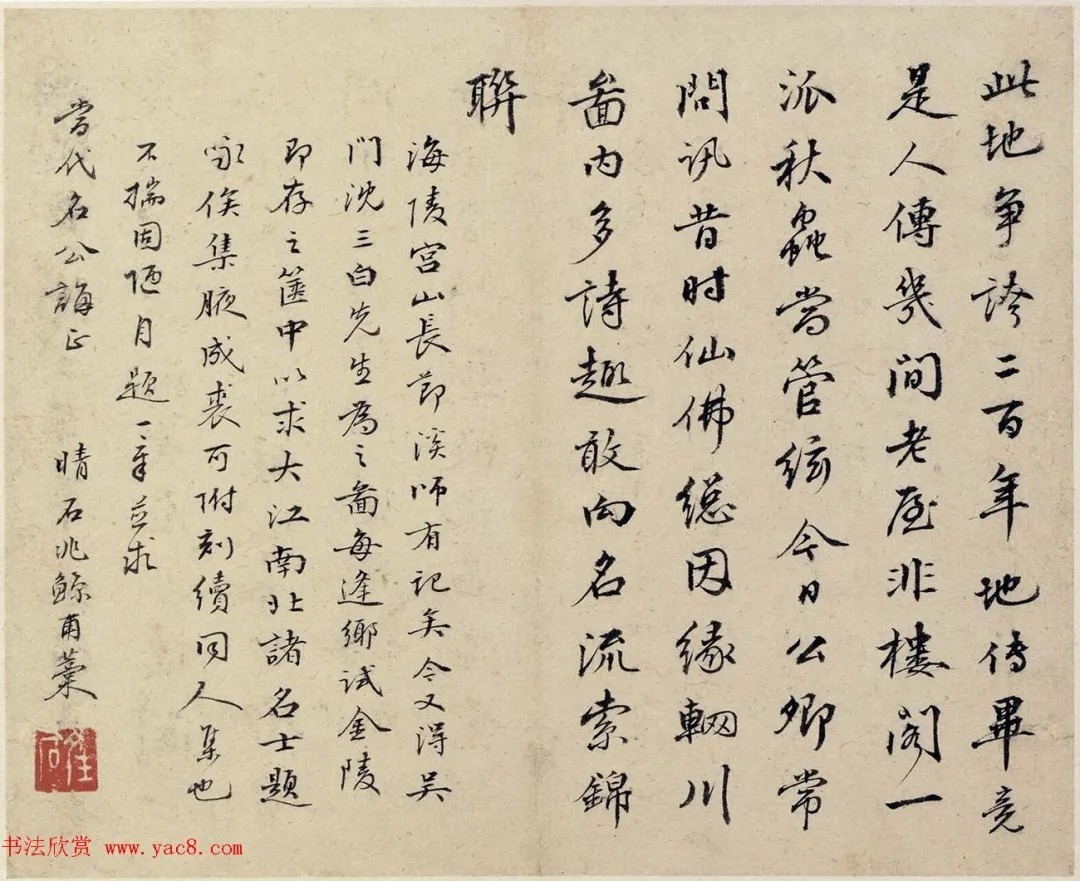 此地爭誇二百年地傳畢竟
是人傳幾間老屋非樓閣一
派秋蟲當管絃今日公卿常
問訊昔時仙佛總因緣輞川
啚內多詩趣敢向名流索錦
聯
海陵宮山長節溪師有記矣今又得吳
門沈三白先生為之啚每逢鄉試金陵
即存之篋中以求大江南北諸名士題
詠俟集腋成裘可附刻續同人集也
不揣固陋自題一章並求
當代名公誨正
晴石兆鯨甫藁
书法欣赏 www.yac8.com